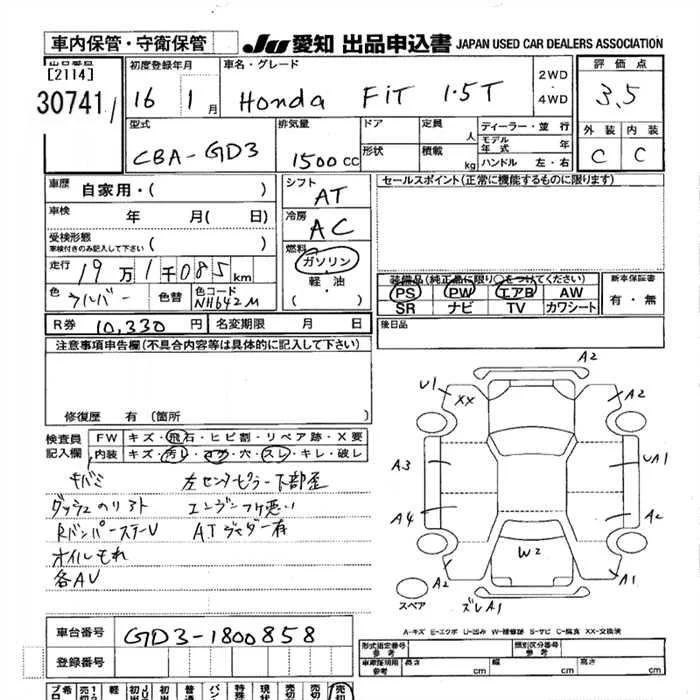 車内保管・守衛保管
JU 愛知 出品申込書 JAPAN USED CAR DEALERS ASSOCIATION
出品番号
[2114]
30741
初度登録年月
16 1月
車名・グレード
Honda FiT 1.5T
2WD
・
4WD
評価点
3.5
外装 内装
C C
型式
CBA-GD3
排気量
1500cc
ドア
形状
定員 人
積載 kg
ディーラー・並行
モデル年式 年
ハンドル 左・右
車歴
自家用・( )
車検
年 月( 日)
受検形態
車検付きのみ記入して下さい ( )
走行
19万1千085km
色 シルバー 色替 色コード NH642M
シフト
AT
冷房
AC
燃料
ガソリン
・
軽・油
( )
セールスポイント(正常に機能するものに限ります)
装備品(純正品に限り○をつけてください)
PS PW エアB AW
SR ナビ TV カワシート
新車保証書
有・無
後日品
R券 10,330円 名変期限 月 日
注意事項申告欄(不具合内容等は具体的に記入して下さい)
修復歴 有 (箇所 )
検査員
記入欄
FW キズ・飛石・ヒビ割・リペア跡・X要
内装 キズ・汚レ・コゲ・穴・スレ・キレ・破レ
キバミ
左センタピラー下部歪
オイルモれ
各AU
A2
U1
XX
A2
A3
UA1
A4
W2
A2
A1
ズレA1
スペア
A-キズ E-エクボ U-凹み W-補修跡 S-サビ C-腐食 XX-交換済
車台番号
GD3-1800858
登録番号
形式指定番号
参考
類別区分番号
参考
車庫証明用
参考
長さ cm
幅 cm
高さ cm